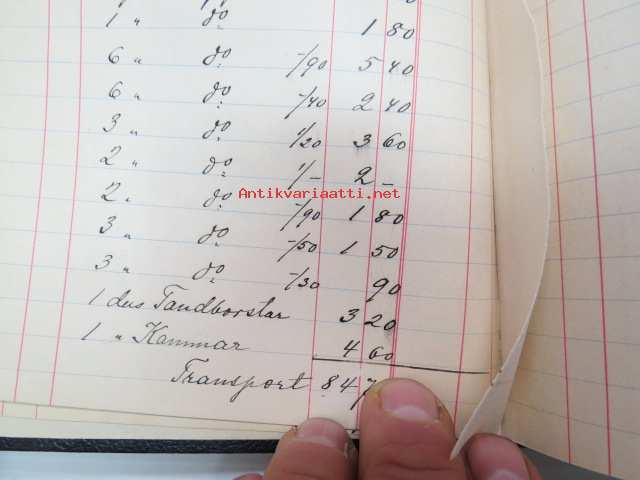 1 " do 1 80
6 " do -/90 5 40
6 " do -/40 2 40
3 " do 1/20 3 60
2 " do 1/- 2 -
Antikvariaatti.net
2 " do -/90 1 80
3 " do -/50 1 50
3 " do -/30 90
1 dus Tandborstar 3 20
1 " Kammar 4 60
Transport 847